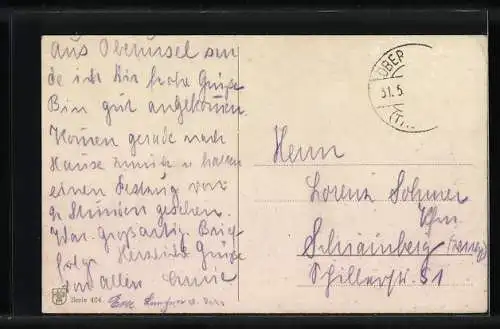 Aus Oberursel sen
de ich Dir frohe Grüße
Bin gut angekommen.
Kommen gerade nach
Hause zurück u. haben
einen Festzug von
2 Stunden gesehen.
War Großartig. Brief
folgt. Herzliche Grüße
von allen
Serie 404
OBER
31.5
(T
Herrn
Lorenz
Schillerstr. 51